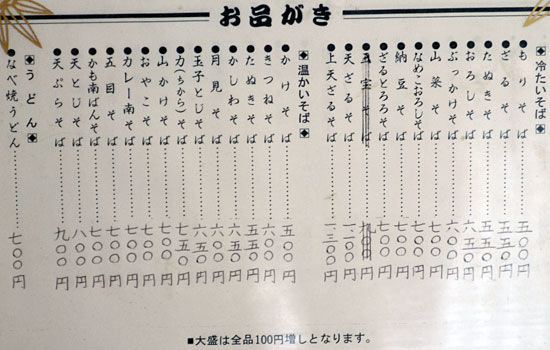 お品がき
◆冷たいそば◆
●もりそば……五〇〇円
●ざるそば……五五〇円
●たぬきそば……五五〇円
●おろしそば……六五〇円
●ぶっかけそば……六〇〇円
●山菜そば……七〇〇円
●なめこおろしそば……七〇〇円
●納豆そば……七〇〇円
●ざるとろろそば……七〇〇円
●宝そば……九〇〇円
●天ざるそば……円
●上天ざるそば……一、三〇〇円
◆温かいそば◆
●かけそば……五〇〇円
●きつねそば……六〇〇円
●たぬきそば……五五〇円
●かしわそば……六五〇円
●月見そば……六〇〇円
●玉子とじそば……六五〇円
●力(ちから)そば……七五〇円
●山かけそば……七〇〇円
●おやこそば……七〇〇円
●カレー南そば……七〇〇円
●五目そば……七〇〇円
●かも南ばんそば……七〇〇円
●天とじそば……八〇〇円
●天ぷらそば……九〇〇円
◆うどん◆
●なべ焼うどん……七〇〇円
■大盛は全品100円増しとなります。